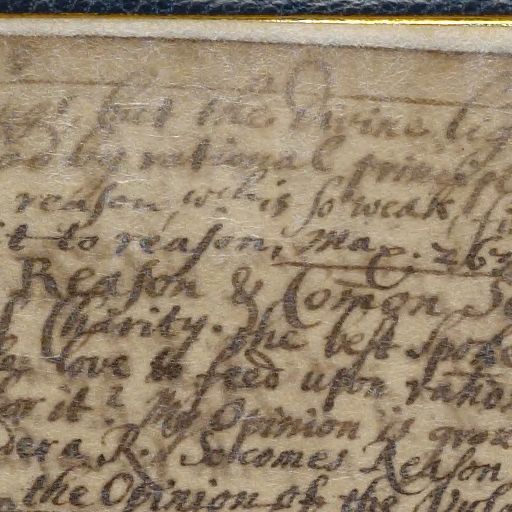 but the Divine lig
by rational princip
reason wch is so weak,
it to reason, Max. 267
Reason & Comon Se
Charity. The best Spok
love to feed upon ration
or it? My Opinion is grou
R. So comes Reason
the Opinion of the Vul